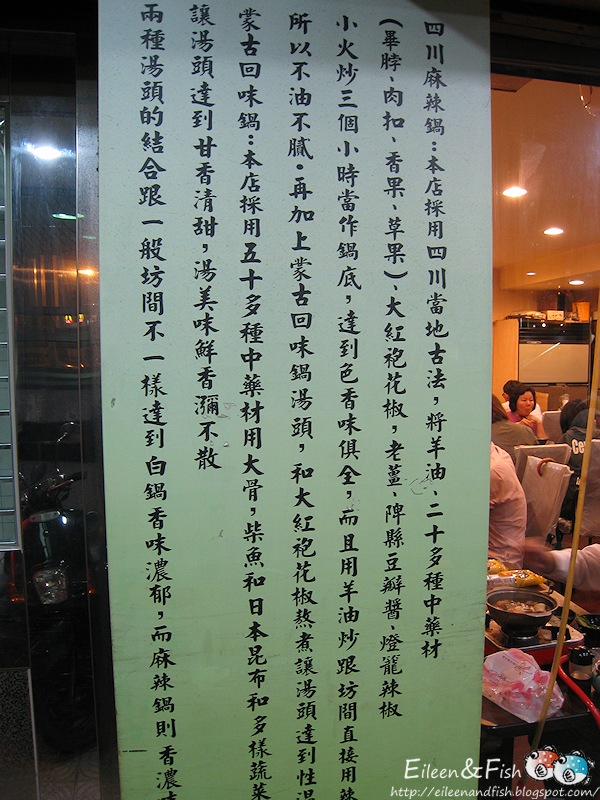 四川麻辣鍋:本店採用四川當地古法,將羊油、二十多種中藥材
(畢脖、肉扣、香果、草果)、大紅袍花椒,老薑、陴縣豆瓣醬、燈籠辣椒
小火炒三個小時當作鍋底,達到色香味俱全,而且用羊油炒跟坊間直接用辣
所以不油不膩。再加上蒙古回味鍋湯頭,和大紅袍花椒熬煮讓湯頭達到性溫
蒙古回味鍋:本店採用五十多種中藥材用大骨,柴魚和日本昆布和多樣蔬菜
讓湯頭達到甘香清甜,湯美味鮮香瀰不散
兩種湯頭的結合跟一般坊間不一樣達到白鍋香味濃郁,而麻辣鍋則香濃
Eileen&Fish
http://eileenandfish.blogspot.com/